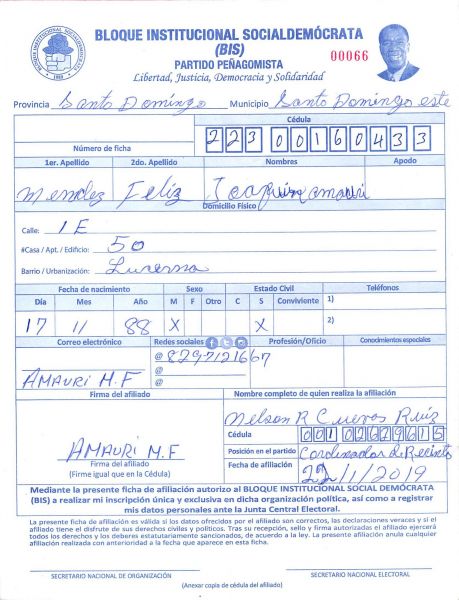 BLOQUE INSTITUCIONAL SOCIALDEMÓCRATA
(BIS)
00066
PARTIDO PEÑAGOMISTA
Libertad, Justicia, Democracia y Solidaridad
Provincia Santo Domingo Municipio Santo Domingo este
Cédula
Número de ficha 223 0016043 3
1er. Apellido 2do. Apellido Nombres Apodo
Mendez Feliz Joaquin amauri
Domicilio Físico
Calle: 1E
#Casa / Apt. / Edificio: 50
Barrio / Urbanización: Lucerna
Fecha de nacimiento Sexo Estado Civil Teléfonos
Día Mes Año M F Otro C S Conviviente 1)
17 11 88 X X 2)
Correo electrónico Redes sociales Profesión/Oficio Conocimientos especiales
@ 8297121667
@
AMAURI M.F @
Firma del afiliado Nombre completo de quien realiza la afiliación
Nelson R Cuevas Ruiz
Cédula 001 0267961 5
AMAURI M.F Posición en el partido Cordinador de Recinto
Firma del afiliado Fecha de afiliación 22/1/2019
(Firme igual que en la Cédula)
Mediante la presente ficha de afiliación autorizo al BLOQUE INSTITUCIONAL SOCIAL DEMÓCRATA
(BIS) a realizar mi inscripción única y exclusiva en dicha organización política, así como a registrar
mis datos personales ante la Junta Central Electoral.
La presente ficha de afiliación es válida si los datos ofrecidos por el afiliado son correctos, las declaraciones veraces y si el
afiliado tiene el disfrute de sus derechos civiles y políticos. Tras su recepción, sello y firma autorizadas el afiliado ejercerá
todos los derechos y los deberes estatutariamente sancionados, de acuerdo a la ley. La presente afiliación anula cualquier
afiliación realizada con anterioridad a la fecha que aparece en esta ficha.
SECRETARIO NACIONAL DE ORGANIZACIÓN SECRETARIO NACIONAL ELECTORAL
(Anexar copia de cédula del afiliado)